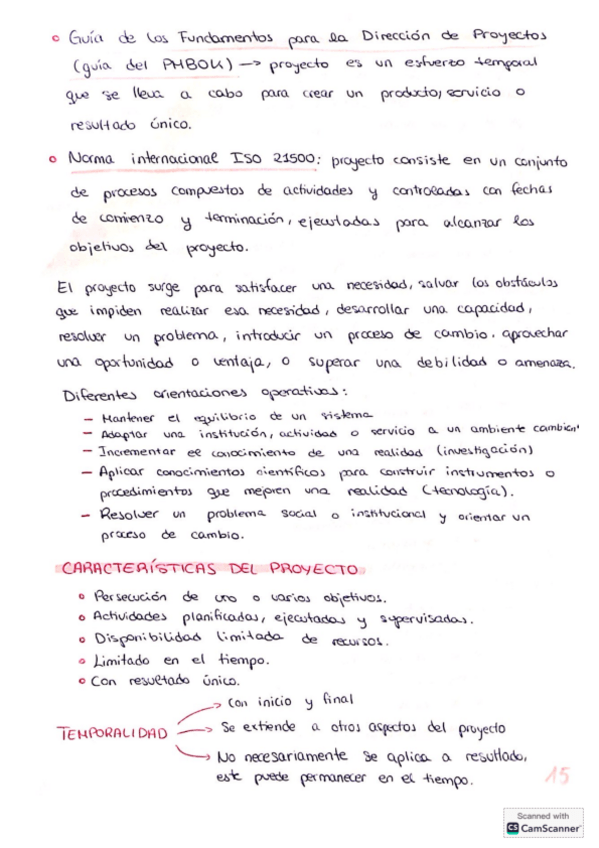 Guía de los Fundamentos para la Dirección de Proyectos
(guía del PMBOK) → proyecto es un esfuerzo temporal
que se lleva a cabo para crear un producto, servicio o
resultado único.
Norma internacional ISO 21500: proyecto consiste en un conjunto
de procesos compuestos de actividades y controladas con fechas
de comienzo y terminación, ejecutadas para alcanzar los
objetivos del proyecto.
El proyecto surge para satisfacer una necesidad, salvar los obstáculos
que impiden realizar esa necesidad, desarrollar una capacidad,
resolver un problema, introducir un proceso de cambio. aprovechar
una oportunidad o ventaja, o superar una debilidad o amenaza.
Diferentes orientaciones operativas:
- Mantener el equilibrio de un sistema
- Adaptar una institución, actividad o servicio a un ambiente cambian
- Incrementar el conocimiento de una realidad (investigación)
- Aplicar conocimientos científicos para construir instrumentos o
procedimientos que mejoren una realidad (tecnología).
- Resolver un problema social o institucional y orientar un
proceso de cambio.
CARACTERÍSTICAS DEL PROYECTO
Persecución de uno o varios objetivos.
Actividades planificadas, ejecutadas y supervisadas.
Disponibilidad limitada de recursos.
Limitado en el tiempo.
Con resultado único.
TEMPORALIDAD
→ Con inicio y final
→ Se extiende a otros aspectos del proyecto
→ No necesariamente se aplica a resultado,
este puede permanecer en el tiempo.
15
Scanned with
CS CamScanner